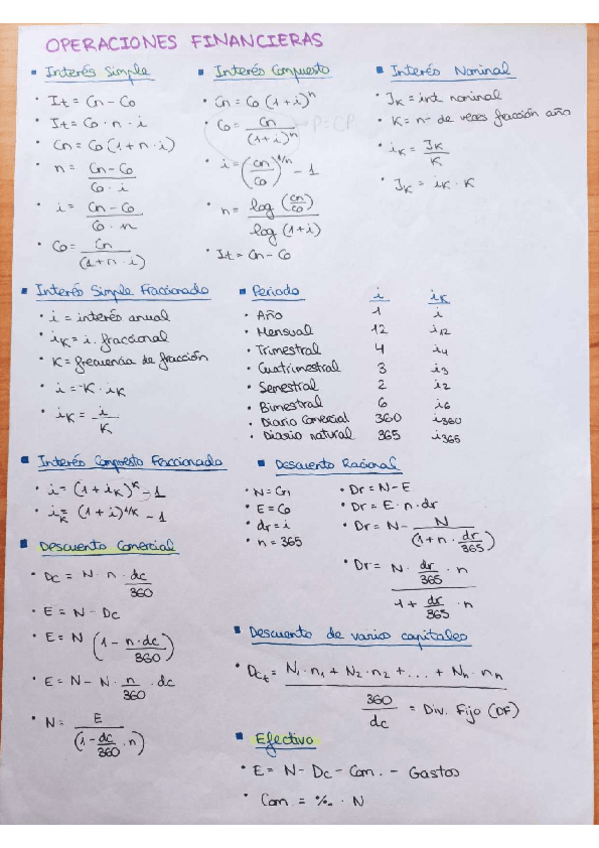 OPERACIONES FINANCIERAS
Interés Simple
It = Cn - Co
It = Co · n · i
Cn = Co (1 + n · i)
n = Cn - Co / Co · i
i = Cn - Co / Co · n
Co = Cn / (1 + n · i)
Interés Compuesto
Cn = Co (1 + i)^n
Co = Cn / (1 + i)^n
i = (Cn / Co)^1/n - 1
n = log (Cn / Co) / log (1 + i)
It = Cn - Co
Interés Nominal
JK = int nominal
K = nº de veces fracción año
iK = JK / K
JK = iK · K
Interés Simple Fraccionado
i = interés anual
iK = i. fraccional
K = frecuencia de fracción
i = K · iK
iK = i / K
Periodo i iK
Año 1 i
Mensual 12 i12
Trimestral 4 i4
Cuatrimestral 3 i3
Semestral 2 i2
Bimestral 6 i6
Diario Comercial 360 i360
Diario natural 365 i365
Interés Compuesto Fraccionado
i = (1 + iK)^K - 1
iK = (1 + i)^1/K - 1
Descuento Racional
N = Cn
E = Co
dr = i
n = 365
Dr = N - E
Dr = E · n · dr
Dr = N - N / (1 + n · dr/365)
Dr = N · dr/365 · n / 1 + dr/365 · n
Descuento Comercial
Dc = N · n · dc/360
E = N - Dc
E = N (1 - n · dc/360)
E = N - N · n/360 · dc
N = E / (1 - dc/360 · n)
Descuento de varios capitales
Dct = N1 · n1 + N2 · n2 + ... + Nn · nn / 360/dc = Div. Fijo (DF)
Efectivo
E = N - Dc - Com. - Gastos
Com. = ‰ · N